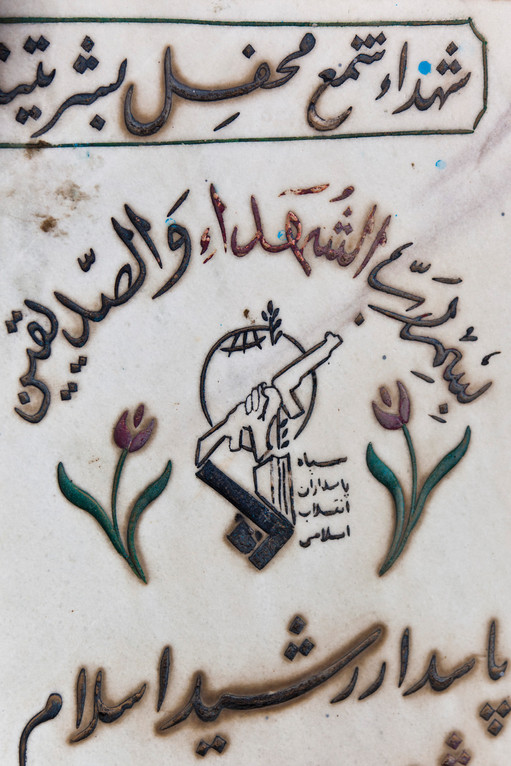 شهداء شمع محفل بشریتند
بسم رب الشهداء و الصدیقین
سپاه
پاسداران
انقلاب
اسلامی
پاسدار رشید اسلام